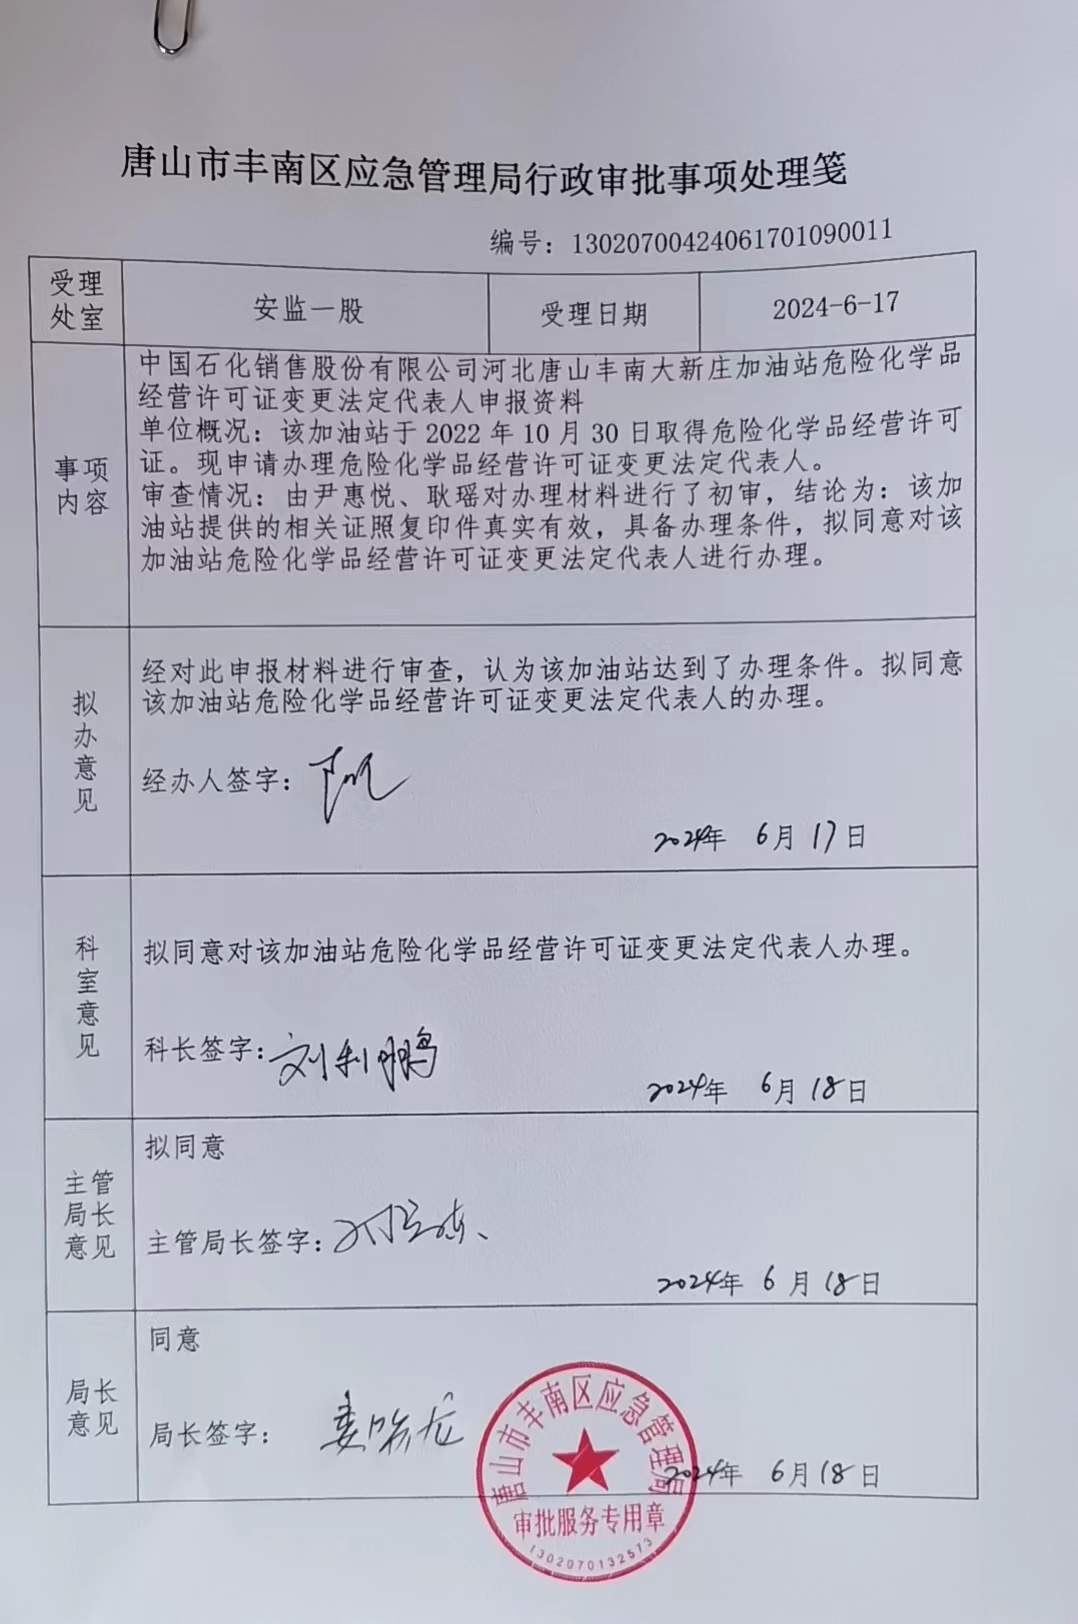 唐山市丰南区应急管理局行政审批事项处理笺
编号：13020700424061701090011
受理处室
安监一股
受理日期
2024-6-17
事项内容
中国石化销售股份有限公司河北唐山丰南大新庄加油站危险化学品
经营许可证变更法定代表人申报资料
单位概况：该加油站于 2022 年 10 月 30 日取得危险化学品经营许可
证。现申请办理危险化学品经营许可证变更法定代表人。
审查情况：由尹惠悦、耿瑶对办理材料进行了初审，结论为：该加
油站提供的相关证照复印件真实有效，具备办理条件，拟同意对该
加油站危险化学品经营许可证变更法定代表人进行办理。
拟办意见
经对此申报材料进行审查，认为该加油站达到了办理条件。拟同意
该加油站危险化学品经营许可证变更法定代表人的办理。
经办人签字：
2024年 6月17日
科室意见
拟同意对该加油站危险化学品经营许可证变更法定代表人办理。
科长签字：刘利鹏
2024年 6月18日
主管局长意见
拟同意
主管局长签字：
2024年 6月18日
局长意见
同意
局长签字：
2024年 6月18日
唐山市丰南区应急管理局
审批服务专用章
1302070132573